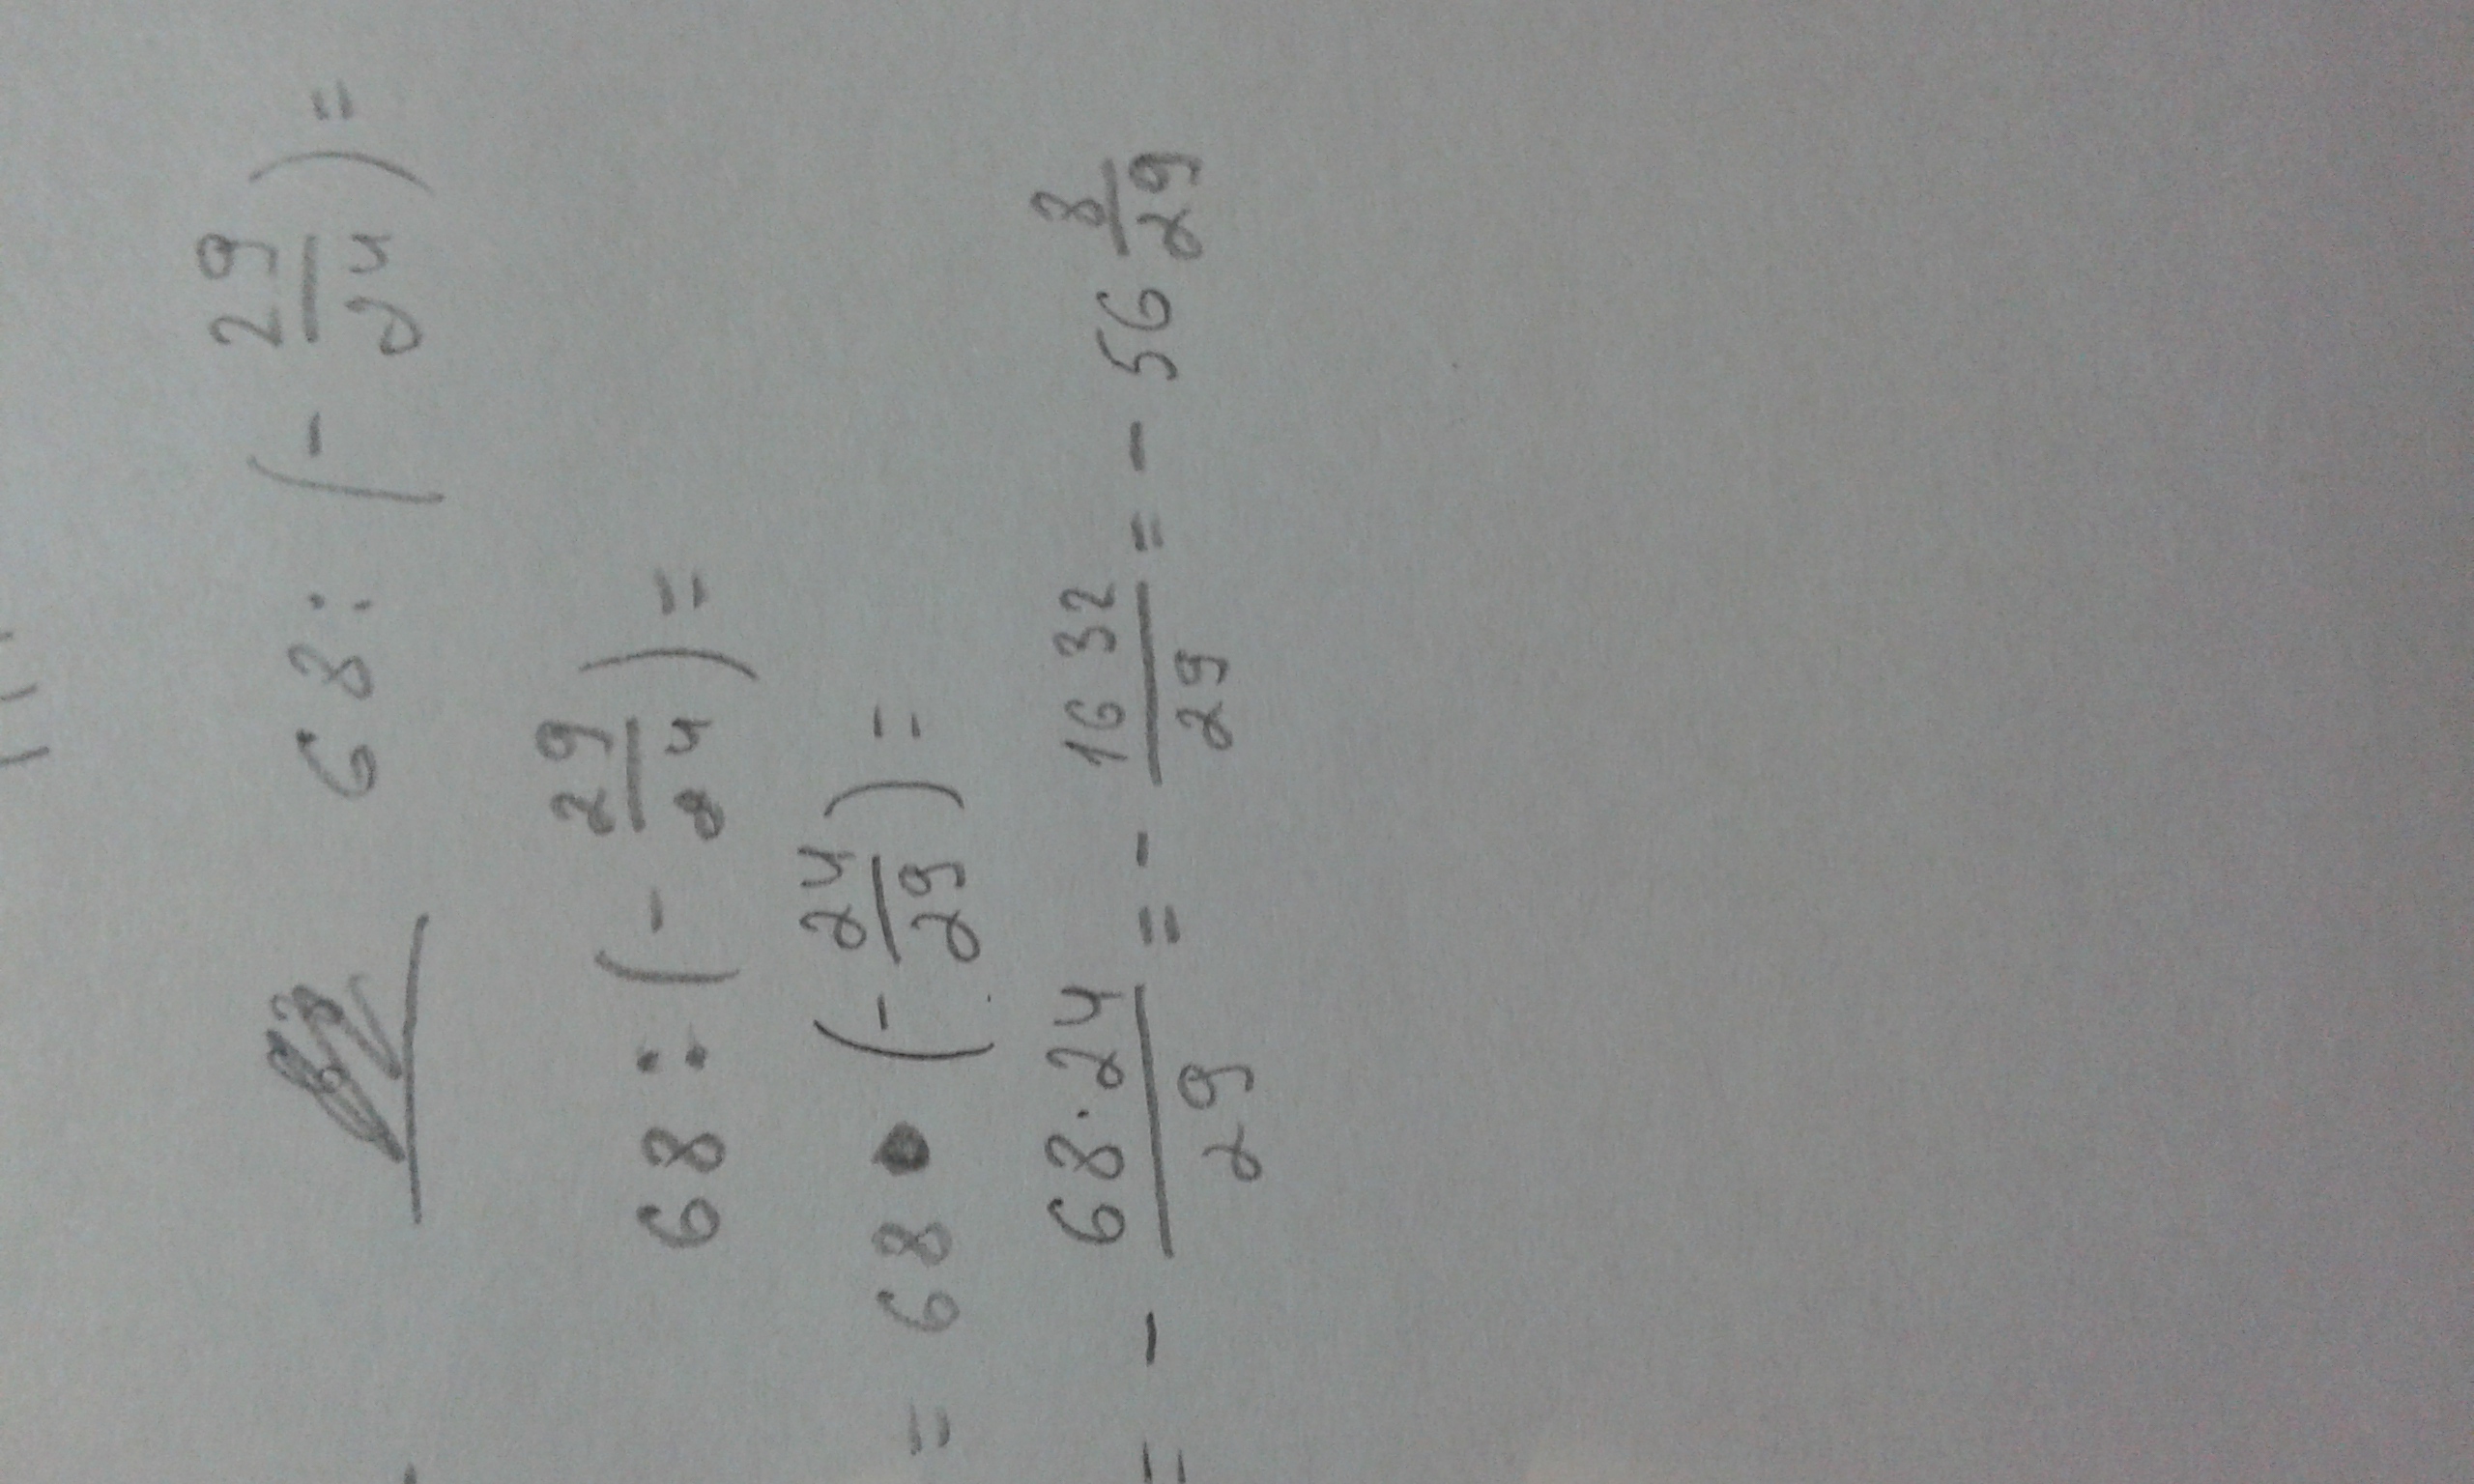 68 : (- 29/24) =
68 : (- 29/24) =
= 68 • (- 24/29) =
= - 68·24/29 = - 1632/29 = - 56 8/29